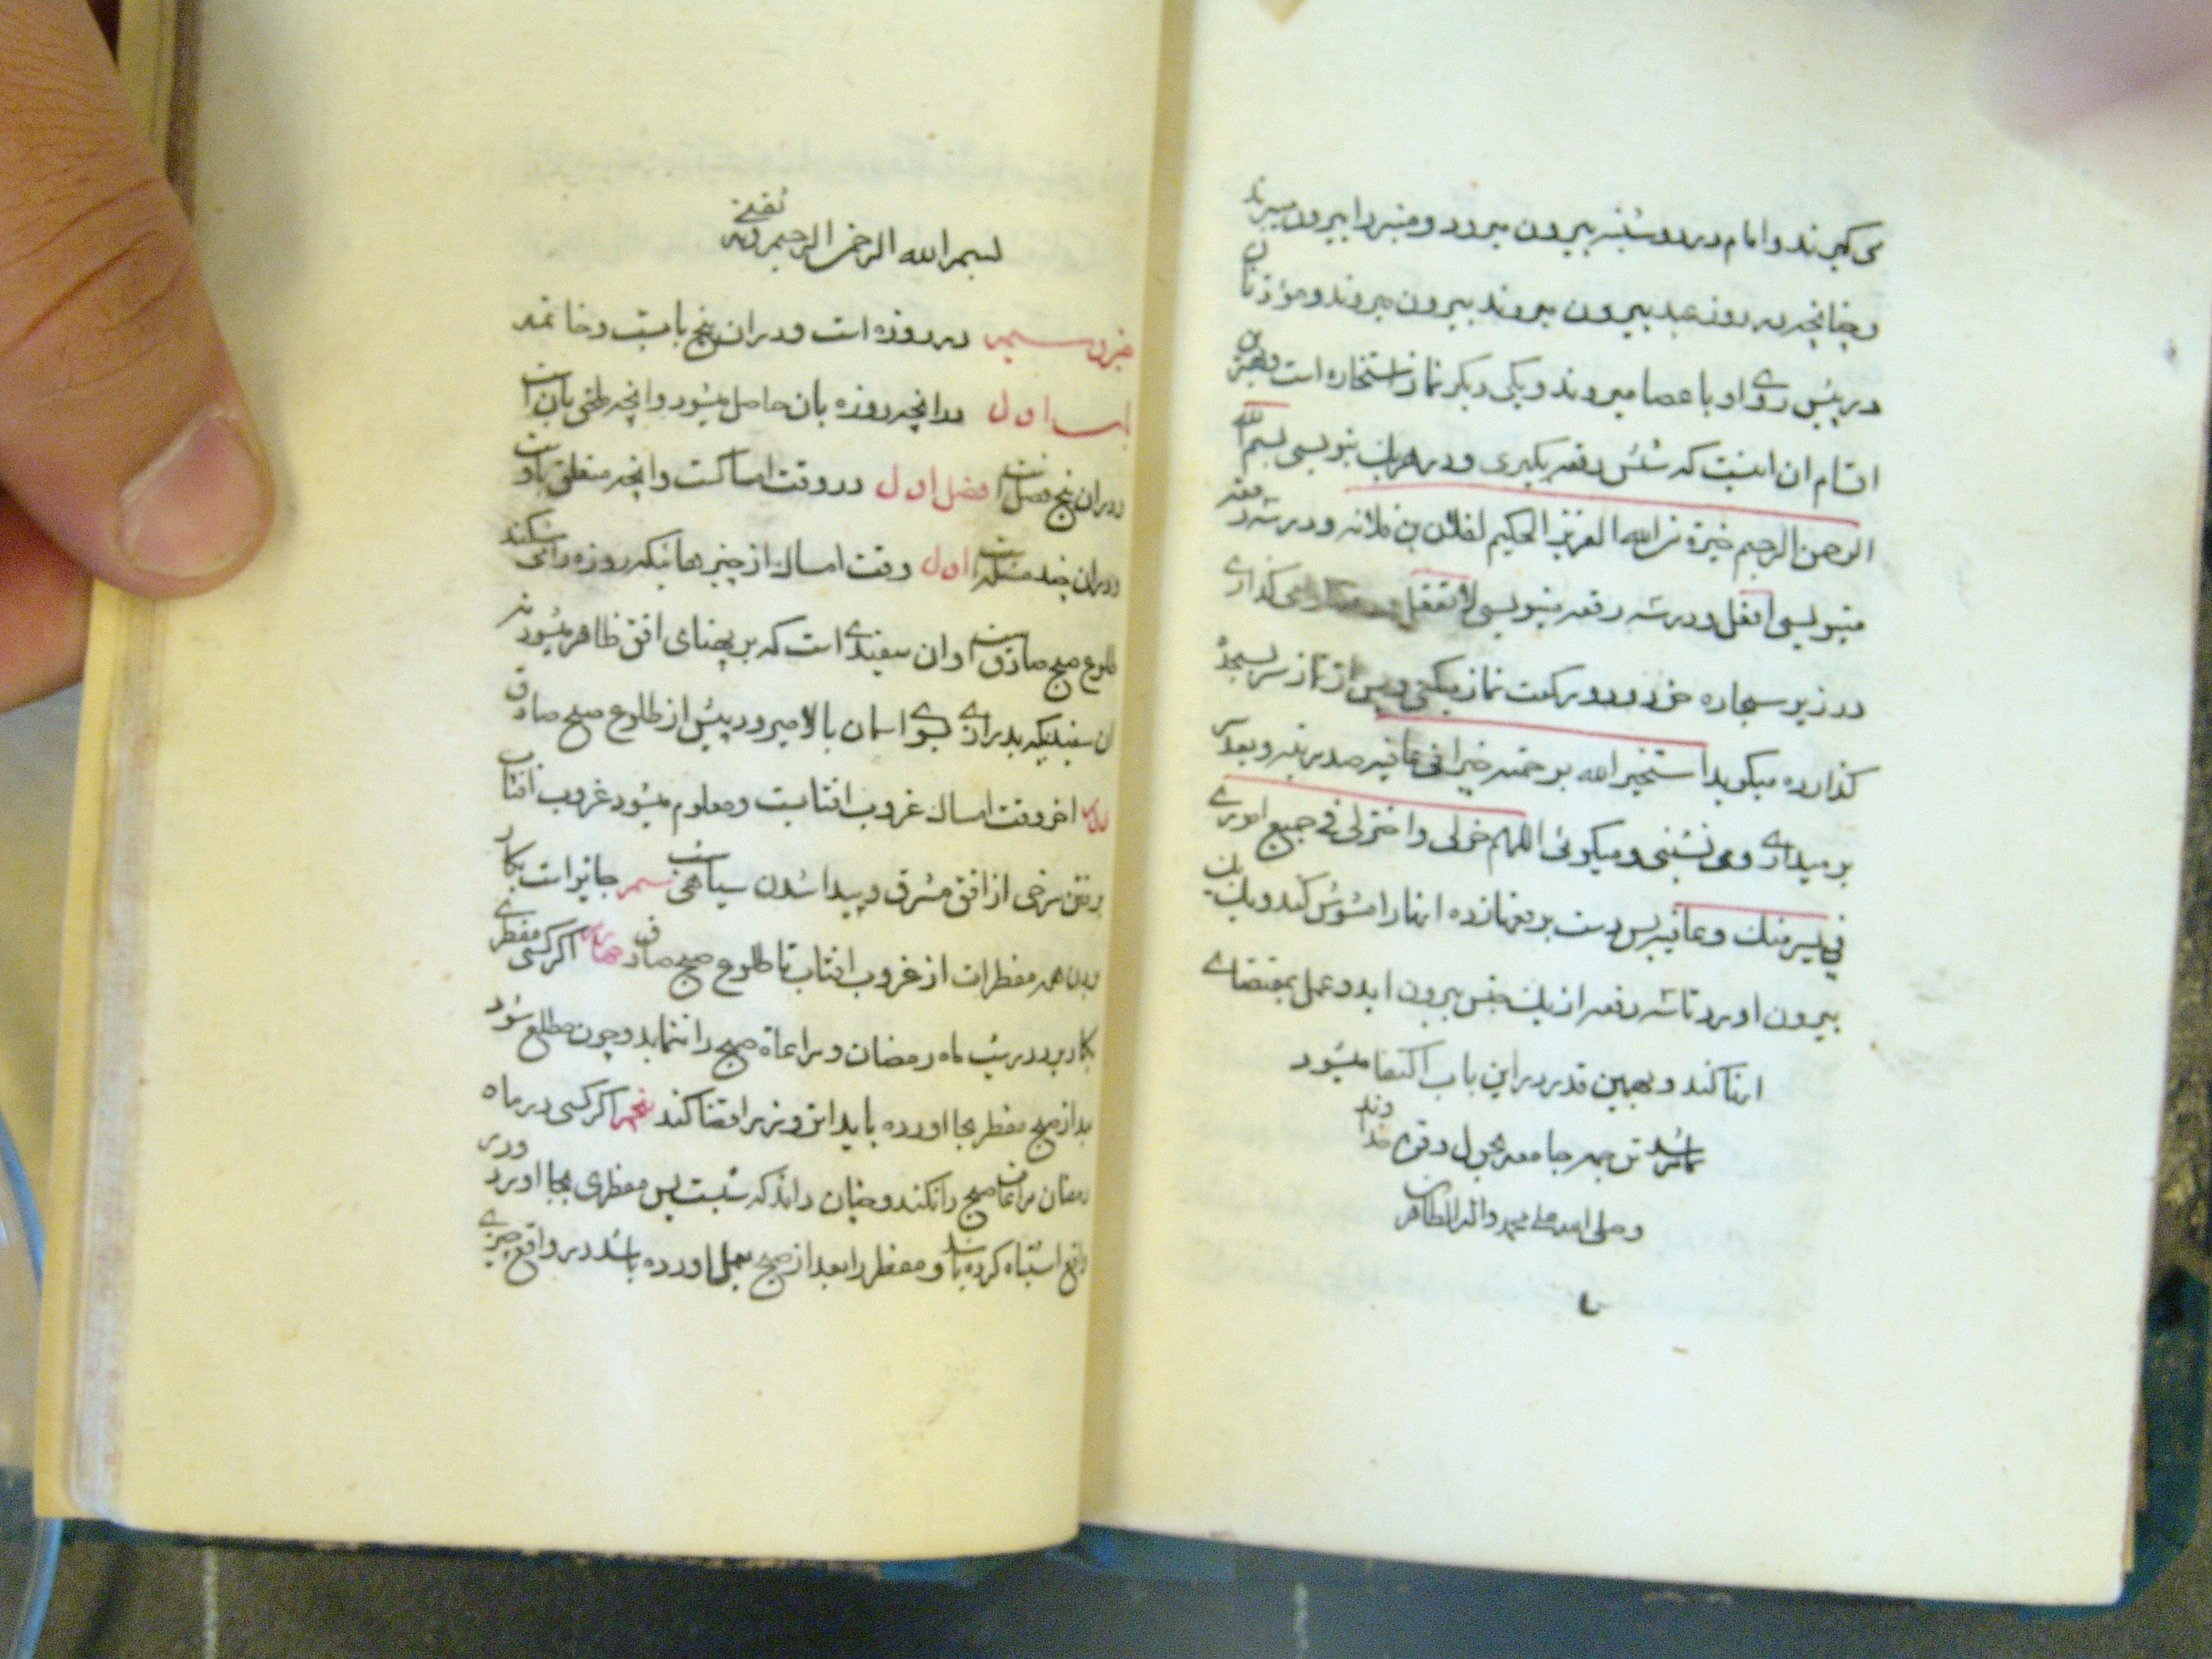 می کیرند و امام در روز دوشنبه بیرون میرود و منبر را بیرون میبرند
و چنانچه در روز عید بیرون میروند بیرون میروند و مؤذنان
در پیش روی او با عصا میروند و یکی دیکر نماز استخاره است و بهترین
اقسام ان انست که شش رقعه بکیری و در هر یک بنویسی بسم الله
الرحمن الرحیم خیرة من الله العزیز الحکیم لفلان بن فلانه و در سه رقعه
مینویسی افعل و در سه رقعه مینویسی لا تفعل می کذاری
در زیر سجاده خود و دو رکعت نماز میکنی و پس از نماز سر بسجده
کذارده میکوید استخیر الله برحمته خیرة فی عافیة صد مرتبه و بعد سر
بر میداری و می نشینی و میکوئی اللهم خر لی و اختر لی فی جمیع اموری
فی یسر منک و عافیة پس دست بر رقعها زده انها را مشوش کند و یک یک
بیرون اورد تا سه رقعه از یک جنس بیرون اید و عمل بمقتضای
انها کند و بهمین قدر در این باب اکتفا میشود
تمام شد ترجمه جامعه بحول و قوه خداوند
و صلی الله علی محمد و اله الطاهرین
بسم الله الرحمن الرحیم و به ثقتی
جزو سیم در روزه است و در ان پنج بابست و خاتمه
باب اول در انچه روزه بان حاصل میشود و انچه ملحق بان است
و در ان پنج فصل است فصل اول در وقت امساکست و انچه متعلق باوست
و در ان چند مسئله است اول وقت امساک از چیزهائیکه روزه را می شکند
طلوع صبح صادق است و ان سفیدی است که بر پهنای افق ظاهر میشود نه
ان سفیدیکه بدرازی بسوی اسمان بالا میرود پیش از طلوع صبح صادق
اخر وقت امساک غروب افتابست و معلوم میشود غروب افتاب
برفتن سرخی از افق مشرق و پیدا شدن سیاهی است سیم جایز است بکار
بردن همه مفطرات از غروب افتاب تا طلوع صبح صادق چهارم اکر کسی مفطری
بکار برد در شب ماه رمضان و مراعاة صبح را ننماید و چون مطلع شود
بعد از صبح مفطر بجا اورده باید ان روز را قضا کند پنجم اکر کسی در ماه
رمضان مراعات صبح را نکند و چنان داند که شبست پس مفطری بجا اورد و در
واقع اشتباه کرده باشد و مفطر را بعد از صبح بعمل اورده باشد در واقع چیزی